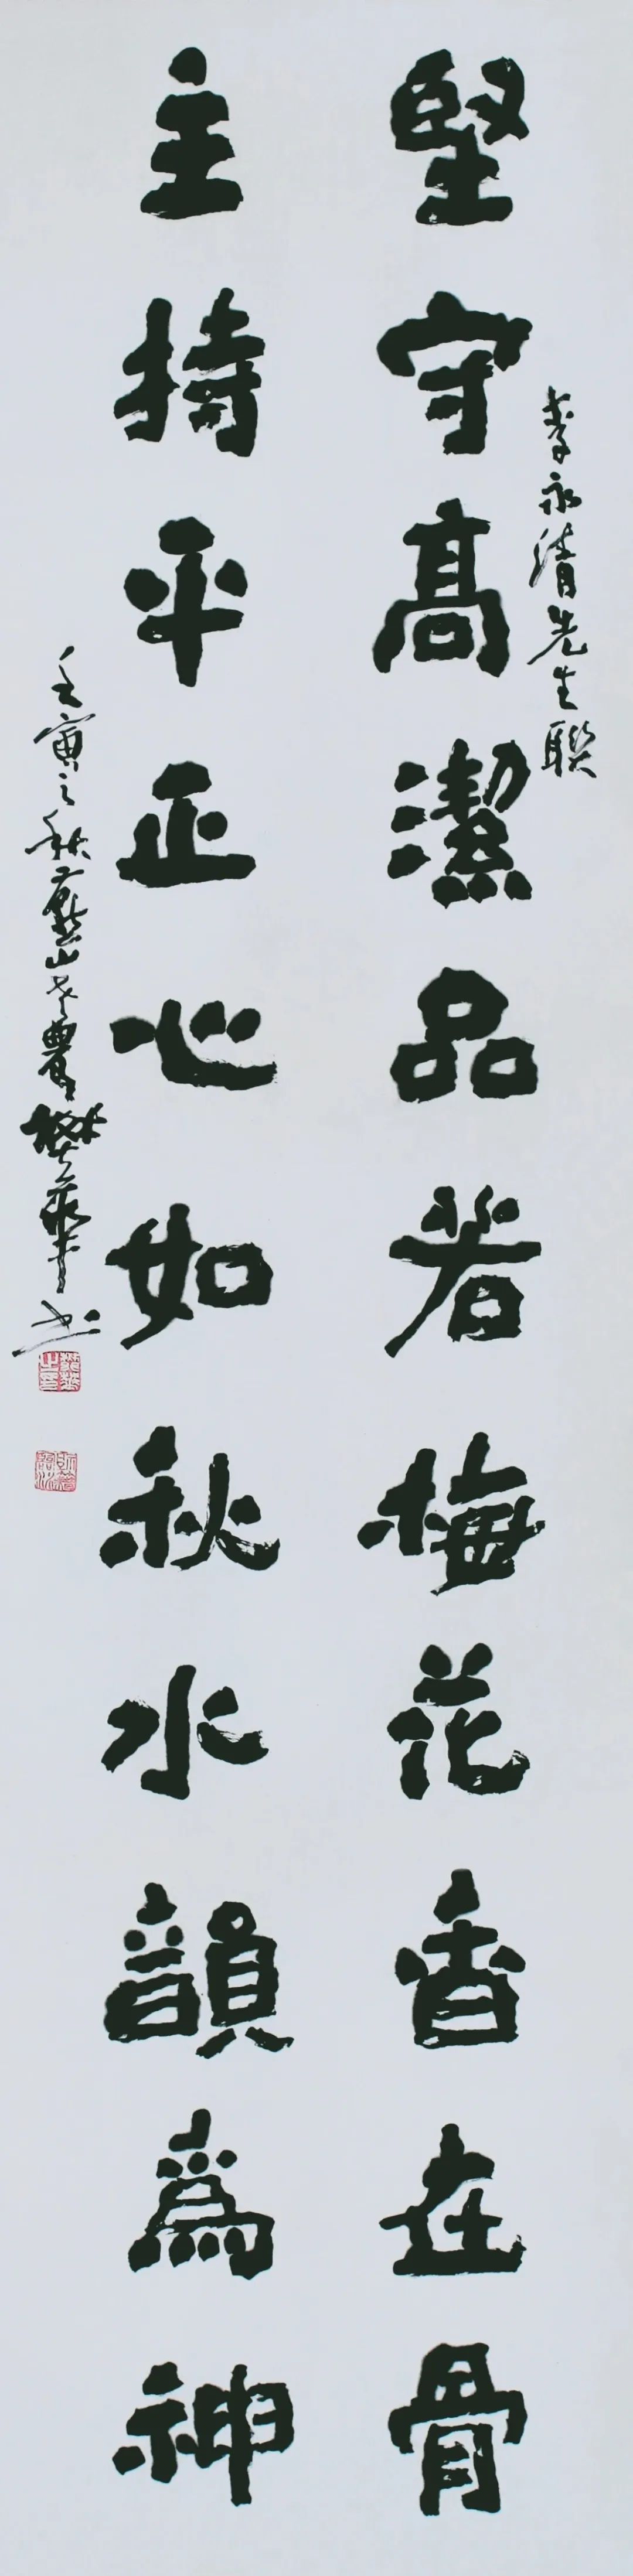 李永清先生聯
堅守高潔品若梅花香在骨
主持平正心如秋水韻為神
壬寅之秋 山老農樊 書